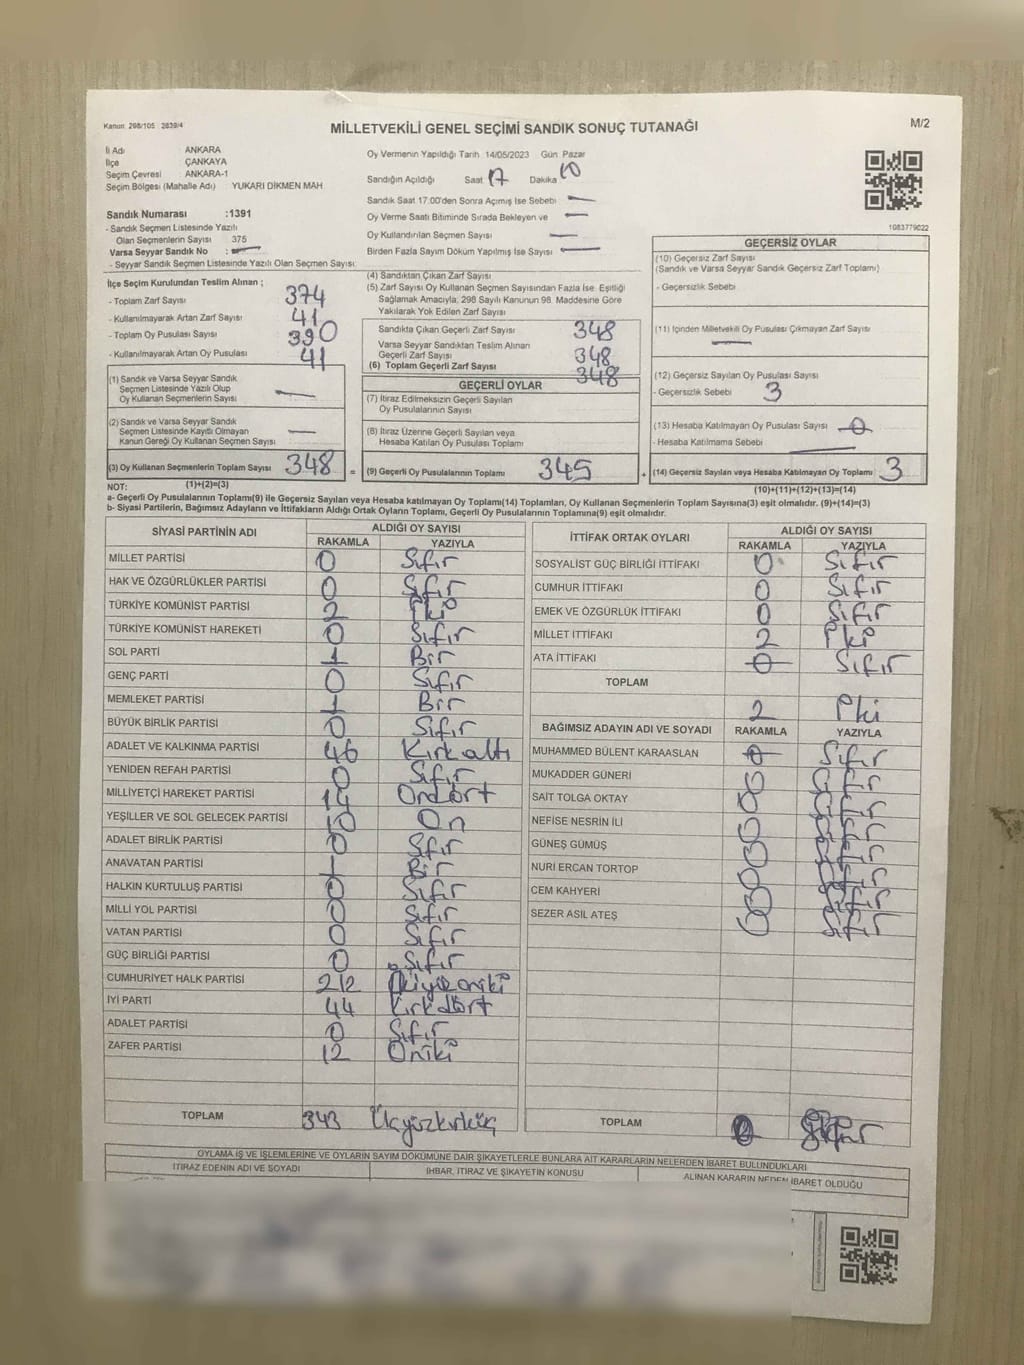 Kanun: 298/105 2839/4
MİLLETVEKİLİ GENEL SEÇİMİ SANDIK SONUÇ TUTANAĞI
M/2
İl Adı ANKARA
İlçe ÇANKAYA
Seçim Çevresi : ANKARA-1
Seçim Bölgesi (Mahalle Adı) YUKARI DİKMEN MAH
Sandık Numarası :1391
- Sandık Seçmen Listesinde Yazılı
Olan Seçmenlerin Sayısı : 375
Varsa Seyyar Sandık No : —
- Seyyar Sandık Seçmen Listesinde Yazılı Olan Seçmen Sayısı:
Oy Vermenin Yapıldığı Tarih 14/05/2023 Gün Pazar
Sandığın Açıldığı Saat 17 Dakika 10
Sandık Saat 17.00'den Sonra Açımış İse Sebebi —
Oy Verme Saati Bitiminde Sırada Bekleyen ve —
Oy Kullandırılan Seçmen Sayısı
Birden Fazla Sayım Döküm Yapılmış İse Sayısı —
1083779022
İlçe Seçim Kurulundan Teslim Alınan ;
- Toplam Zarf Sayısı 374
- Kullanılmayarak Artan Zarf Sayısı 41
- Toplam Oy Pusulası Sayısı 390
- Kullanılmayarak Artan Oy Pusulası 41
(1) Sandık ve Varsa Seyyar Sandık
Seçmen Listesinde Yazılı Olup
Oy Kullanan Seçmenlerin Sayısı —
(2) Sandık ve Varsa Seyyar Sandık
Seçmen Listesinde Kayıtlı Olmayan
Kanun Gereği Oy Kullanan Seçmen Sayısı —
(3) Oy Kullanan Seçmenlerin Toplam Sayısı 348 =
(1)+(2)=(3)
(4) Sandıktan Çıkan Zarf Sayısı
(5) Zarf Sayısı Oy Kullanan Seçmen Sayısından Fazla İse, Eşitliği
Sağlamak Amacıyla, 298 Sayılı Kanunun 98. Maddesine Göre
Yakılarak Yok Edilen Zarf Sayısı
Sandıkta Çıkan Geçerli Zarf Sayısı 348
Varsa Seyyar Sandıktan Teslim Alınan
Geçerli Zarf Sayısı 348
(6) Toplam Geçerli Zarf Sayısı 348
GEÇERLİ OYLAR
(7) İtiraz Edilmeksizin Geçerli Sayılan
Oy Pusulalarının Sayısı
(8) İtiraz Üzerine Geçerli Sayılan veya
Hesaba Katılan Oy Pusulası Toplamı
(9) Geçerli Oy Pusulalarının Toplamı 345 +
GEÇERSİZ OYLAR
(10) Geçersiz Zarf Sayısı
(Sandık ve Varsa Seyyar Sandık Geçersiz Zarf Toplamı)
- Geçersizlik Sebebi
(11) İçinden Milletvekili Oy Pusulası Çıkmayan Zarf Sayısı
—
(12) Geçersiz Sayılan Oy Pusulası Sayısı
- Geçersizlik Sebebi 3
(13) Hesaba Katılmayan Oy Pusulası Sayısı 0
- Hesaba Katılmama Sebebi —
(14) Geçersiz Sayılan veya Hesaba Katılmayan Oy Toplamı 3
(10)+(11)+(12)+(13)=(14)
NOT:
a- Geçerli Oy Pusulalarının Toplamı(9) ile Geçersiz Sayılan veya Hesaba katılmayan Oy Toplamı(14) Toplamları, Oy Kullanan Seçmenlerin Toplam Sayısına(3) eşit olmalıdır. (9)+(14)=(3)
b- Siyasi Partilerin, Bağımsız Adayların ve İttifakların Aldığı Ortak Oyların Toplamı, Geçerli Oy Pusulalarının Toplamına(9) eşit olmalıdır.
SİYASİ PARTİNİN ADI ALDIĞI OY SAYISI
RAKAMLA YAZIYLA
MİLLET PARTİSİ 0 Sıfır
HAK VE ÖZGÜRLÜKLER PARTİSİ 0 Sıfır
TÜRKİYE KOMÜNİST PARTİSİ 2 İki
TÜRKİYE KOMÜNİST HAREKETİ 0 Sıfır
SOL PARTİ 1 Bir
GENÇ PARTİ 0 Sıfır
MEMLEKET PARTİSİ 1 Bir
BÜYÜK BİRLİK PARTİSİ 0 Sıfır
ADALET VE KALKINMA PARTİSİ 46 Kırkaltı
YENİDEN REFAH PARTİSİ 0 Sıfır
MİLLİYETÇİ HAREKET PARTİSİ 14 Ondört
YEŞİLLER VE SOL GELECEK PARTİSİ 10 On
ADALET BİRLİK PARTİSİ 0 Sıfır
ANAVATAN PARTİSİ 1 Bir
HALKIN KURTULUŞ PARTİSİ 0 Sıfır
MİLLİ YOL PARTİSİ 0 Sıfır
VATAN PARTİSİ 0 Sıfır
GÜÇ BİRLİĞİ PARTİSİ 0 Sıfır
CUMHURİYET HALK PARTİSİ 212 İkiyüzoniki
İYİ PARTİ 44 Kırkdört
ADALET PARTİSİ 0 Sıfır
ZAFER PARTİSİ 12 Oniki
TOPLAM 343 Üçyüzkırküç
İTTİFAK ORTAK OYLARI ALDIĞI OY SAYISI
RAKAMLA YAZIYLA
SOSYALİST GÜÇ BİRLİĞİ İTTİFAKI 0 Sıfır
CUMHUR İTTİFAKI 0 Sıfır
EMEK VE ÖZGÜRLÜK İTTİFAKI 0 Sıfır
MİLLET İTTİFAKI 2 İki
ATA İTTİFAKI 0 Sıfır
TOPLAM
2 İki
BAĞIMSIZ ADAYIN ADI VE SOYADI RAKAMLA YAZIYLA
MUHAMMED BÜLENT KARAASLAN 0 Sıfır
MUKADDER GÜNERİ 0 Sıfır
SAİT TOLGA OKTAY 0 Sıfır
NEFİSE NESRİN İLİ 0 Sıfır
GÜNEŞ GÜMÜŞ 0 Sıfır
NURİ ERCAN TORTOP 0 Sıfır
CEM KAHYERİ 0 Sıfır
SEZER ASIL ATEŞ 0 Sıfır
TOPLAM 0
OYLAMA İŞ VE İŞLEMLERİNE VE OYLARIN SAYIM DÖKÜMÜNE DAİR ŞİKAYETLERLE BUNLARA AİT KARARLARIN NELERDEN İBARET BULUNDUKLARI
İTİRAZ EDENİN ADI VE SOYADI İHBAR, İTİRAZ VE ŞİKAYETİN KONUSU ALINAN KARARIN NEDEN İBARET OLDUĞU